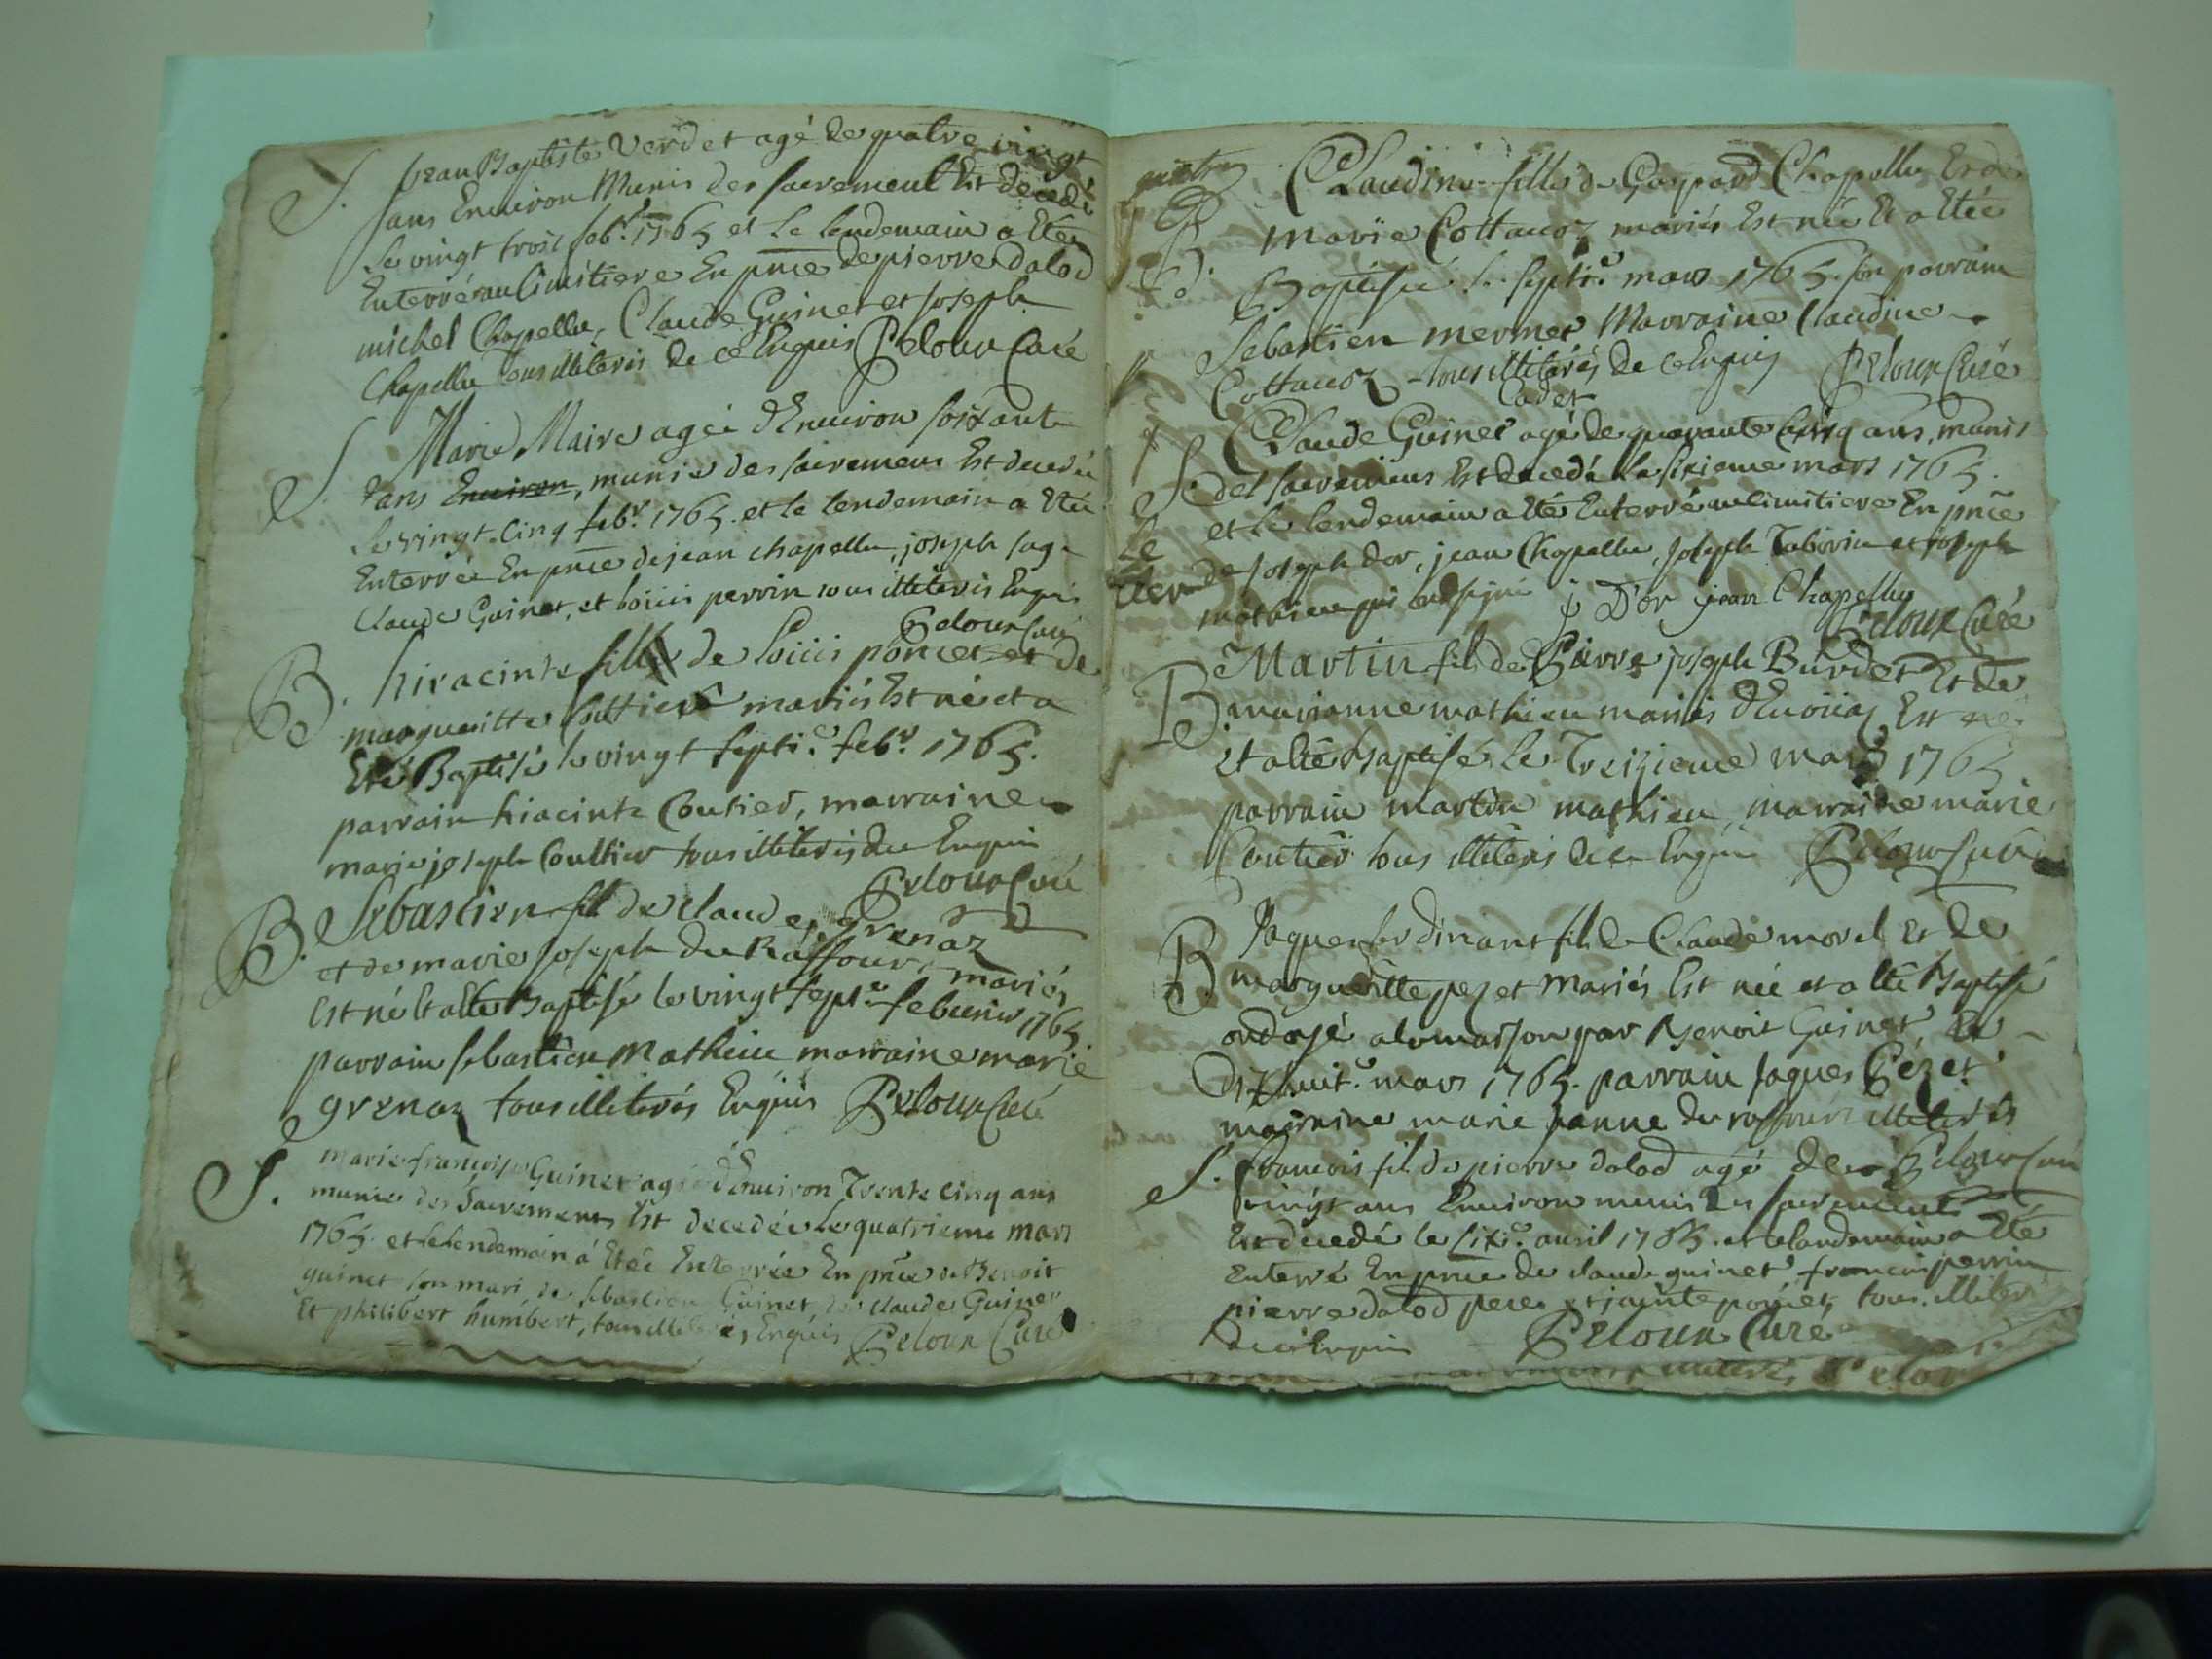 S. Jean Baptiste Verdet agé de quatre vingt
ans Environ Munis des sacrement Est decedé
le vingt trois feb.r 1765 et le lendemain a Eté
Enterré au Cimitiere En pnce de pierre dalod
michel Chapellu, Claude Guinet et Joseph
Chapellu tous illiteris de ce Enquis Peloux Curé
S. Marie Maire agée d'Environ soixante
dans Environ, munie des sacremens Est decedée
le vingt cinq feb.r 1765. et le lendemain a Etée
Enterrée En pnce de jean chapellu, joseph
Claude Guinet, et loüis perrin tous illiteris Enquis
Peloux Curé
B. hiracinte fille de loüis poncet et de
margueritte Couttier mariés Est né et a
Eté Baptisé le vingt septi.e feb.r 1765.
parrain hiacinte Coutier, marraine
marie joseph Coultier tous illiterés de Enquis
Peloux Curé
B. Sebastien fil de claude grenaz
et de marie joseph du Raffour, mariés
Est né Et a Eté Baptisé le vingt sept.e febvrier 1765.
parrain sebastien Mathieu marraine marie
grenaz tous illiterés Enquis Peloux Curé
S. marie françoise Guinet agée d'Environ Trente cinq ans
munie des Sacremens Est decedée le quatrieme mars
1765. et le lendemain á Etée Enterrée En pnce de Benoit
guinet son mari, de sebastien Guinet, de claude Guinet
Et philibert humbert, tous illiterés, Enquis Peloux Curé
Claudine fille de Gaspard Chapellu Et de
B. marïe Cottavoz mariés Est née Et a Etée
Baptisée le septi.e mars 1765. son parrain
Sebastien mermet Marraine Claudine
Cottavoz tous illiterés de ce Enquis Peloux Curé
Cadet
Claude Guinet agé de quarante Cinq ans, munis
S. des sacremens Est decedé le sixieme mars 1765.
et le lendemain a Eté Enterré au cimitiere En pnce
de Joseph Dor, jean Chapellu, Joseph Taborin et joseph
mathieu qui ont signé j D'or jean Chapellu
Peloux Curé
Martin fil de Pierre joseph Burdet Et de
B. marianne mathieu mariés Est né
Et a Eté Baptisé le Treizieme mars 1765.
parrain martin mathieu, marraine marie
Coutier tous illiteris de ce Enquis Peloux Curé
Jaques ferdinant fil de Claude morel Et de
B. margueritte pezet Mariés Est née et a Eté Baptisé
ondoyé a la maison par Benoit Guinet, Le
Dixhuit.e mars 1765. parrain Jaques Pezet
marraine marie janne du raffour illiterés
Peloux Curé
S. francois fil de pierre dalod agé de
vingt ans Environ munis des sacrements
Est decedé le six.e avril 1765. et le landemain a Eté
Enterré En pnce de claude guinet, francois perrin
pierre dalod pere et jointe poncet, tous illiteré
de ce Enquis Peloux Curé